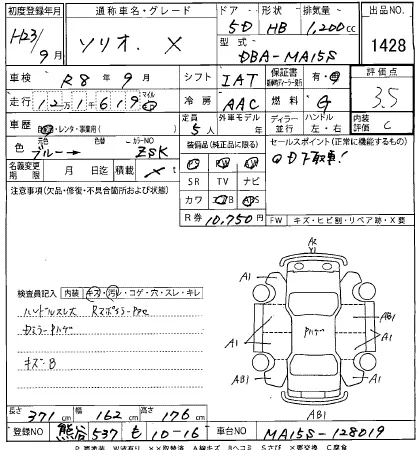 初度登録年月 通称車名・グレード ドア 形状 排気量 出品NO.
H23/9月 ソリオ. X 5D HB 1,200cc 1428
型式 DBA-MA15S
車検 R8年9月 シフト IAT 保証書 有・無 評価点
走行 12万1千619 マイル km 冷房 AAC 燃料 G 3.5
車歴 自家・レンタ・事業用( ) 定員 5人 外車モデル ディーラー 並行 ハンドル 左・右 内装評価 C
色 元色 ブルー→ 色替 カラーNO ZSK 装備品(純正品に限る) セールスポイント(正常に機能するもの)
PS PW ①D下取車!
名義変更期限 月 日迄 積載 X t SR TV ナビ
注意事項(欠品・修復・不具合箇所および状態) カワ エアB ABS
R券 10,750円 FW キズ・ヒビ割・リペア跡・X要
A2
Y1
A1 A1
検査員記入 内装 キズ・汚レ・コゲ・穴・スレ・キレ
ハンドルスレ
DミラーPハゲ
キズB
A1 Pハゲ AB1
A1 A1
AB1 A1
AB1
長さ 371cm 幅 162cm 高さ 176cm
登録NO 熊谷 537 も 10-16 車台NO MA15S-128019
P.要塗装 W波有り ××取替済 A線キズ Bヘコミ Sさび ×要交換 C腐食